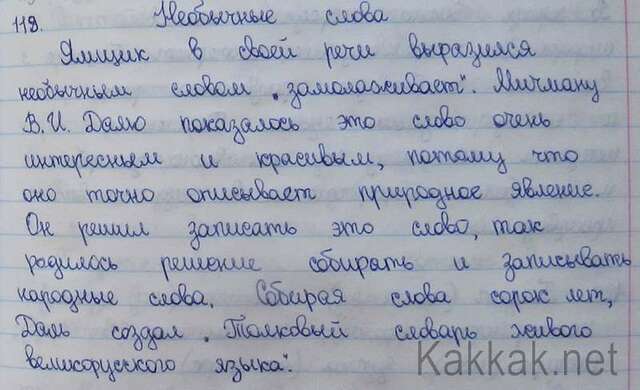 118. Необычные слова
Ямщик в своей речи выразился
необычным словом „замолаживает". Мичману
В. И. Далю показалось это слово очень
интересным и красивым, потому что
оно точно описывает природное явление.
Он решил записать это слово, так
родилось решение собирать и записывать
народные слова. Собирая слова сорок лет,
Даль создал „Толковый словарь живого
великорусского языка".
Kakkak.net